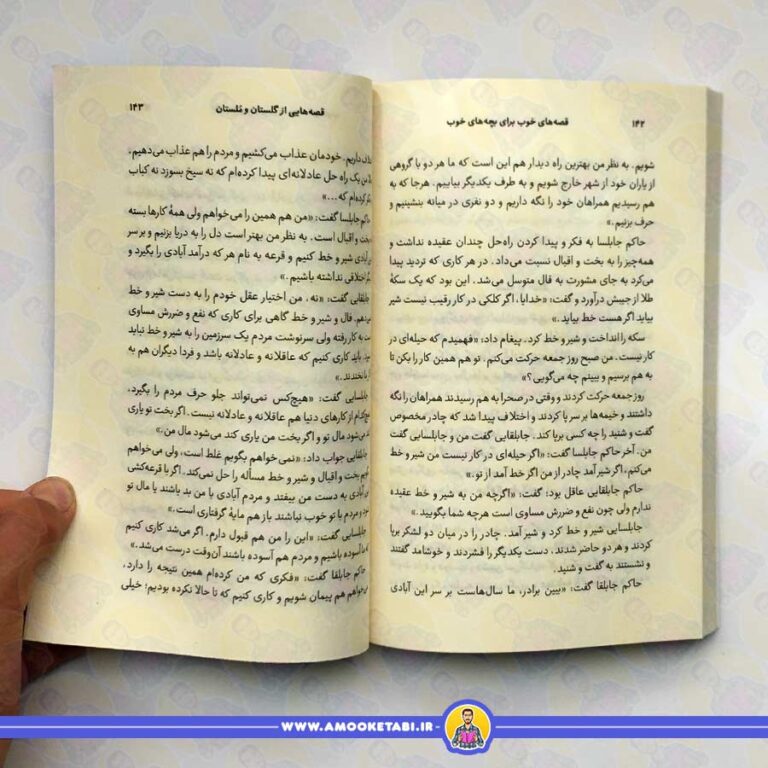 ۱۴۲
قصه‌های خوب برای بچه‌های خوب
شویم. به نظر من بهترین راه دیدار هم این است که ما هر دو با گروهی
از یاران خود از شهر خارج شویم و به طرف یکدیگر بیاییم. هرجا که به
هم رسیدیم همراهان خود را نگه داریم و دو نفری در میانه بنشینیم و
حرف بزنیم.»
حاکم جابلسا به فکر و پیدا کردن راه‌حل چندان عقیده نداشت و
همه‌چیز را به بخت و اقبال نسبت می‌داد. در هر کاری که تردید پیدا
می‌کرد به جای مشورت به فال متوسل می‌شد. این بود که یک سکهٔ
طلا از جیبش درآورد و گفت: «خدایا، اگر کلکی در کار رقیب نیست شیر
بیاید اگر هست خط بیاید.»
سکه را انداخت و شیر و خط کرد. پیغام داد: «فهمیدم که حیله‌ای در
کار نیست. من صبح روز جمعه حرکت می‌کنم. تو هم همین کار را بکن تا
به هم برسیم و ببینم چه می‌گویی؟»
روز جمعه حرکت کردند و وقتی در صحرا به هم رسیدند همراهان را نگه
داشتند و خیمه‌ها بر سر پا کردند و اختلاف پیدا شد که چادر مخصوص
گفت و شنید را چه کسی برپا کند. جابلقایی گفت من و جابلسایی گفت
من. آخر حاکم جابلسا گفت: «اگر حیله‌ای در کار نیست من شیر و خط
می‌کنم، اگر شیر آمد چادر از من اگر خط آمد از تو.»
حاکم جابلقایی عاقل بود؛ گفت: «اگرچه من به شیر و خط عقیده
ندارم ولی چون نفع و ضررش مساوی است هرچه شما بگویید.»
جابلسایی شیر و خط کرد و شیر آمد. چادر را در میان دو لشکر برپا
کردند و هر دو حاضر شدند. دست یکدیگر را فشردند و خوشامد گفتند
و نشستند به گفت و شنید.
حاکم جابلقا گفت: «ببین برادر، ما سال‌هاست بر سر این آبادی
قصه‌هایی از گلستان و ملستان
۱۴۳
داریم. خودمان عذاب می‌کشیم و مردم را هم عذاب می‌دهیم.
من یک راه حل عادلانه‌ای پیدا کرده‌ام که نه سیخ بسوزد نه کباب
کرده‌ام که ...»
حاکم جابلسا گفت: «من هم همین را می‌خواهم ولی همهٔ کارها بسته
بخت و اقبال است. به نظر من بهتر است دل را به دریا بزنیم و بر سر
آبادی شیر و خط کنیم و قرعه به نام هر که درآمد آبادی را بگیرد و
اختلافی نداشته باشیم.»
جابلقایی گفت: «نه، من اختیار عقل خودم را به دست شیر و خط
نمی‌دهم. فال و شیر و خط گاهی برای کاری که نفع و ضررش مساوی
است به کار رفته ولی سرنوشت مردم یک سرزمین را به شیر و خط نباید
باید کاری کنیم که عاقلانه و عادلانه باشد و فردا دیگران هم به
نخندند.»
جابلسایی گفت: «هیچ‌کس نمی‌تواند جلو حرف مردم را بگیرد.
از کارهای دنیا هم عاقلانه و عادلانه نیست. اگر بخت تو یاری
مال تو و اگر بخت من یاری کند می‌شود مال من.»
جابلقایی جواب داد: «نمی‌خواهم بگویم غلط است، ولی می‌خواهم
بگویم بخت و اقبال و شیر و خط مسأله را حل نمی‌کند. اگر با قرعه‌کشی
آبادی به دست من بیفتد و مردم آبادی با من بد باشند یا مال تو
و مردم با تو خوب نباشند باز هم مایهٔ گرفتاری است.»
جابلسایی گفت: «این را من هم قبول دارم. اگر می‌شد کاری کنیم
ما آسوده باشیم و مردم هم آسوده باشند آن‌وقت درست می‌شد.»
حاکم جابلقا گفت: «فکری که من کرده‌ام همین نتیجه را دارد.
می‌خواهم هم پیمان شویم و کاری کنیم که تا حالا نکرده بودیم؛ خیلی
WWW.AMOOKETABI.IR